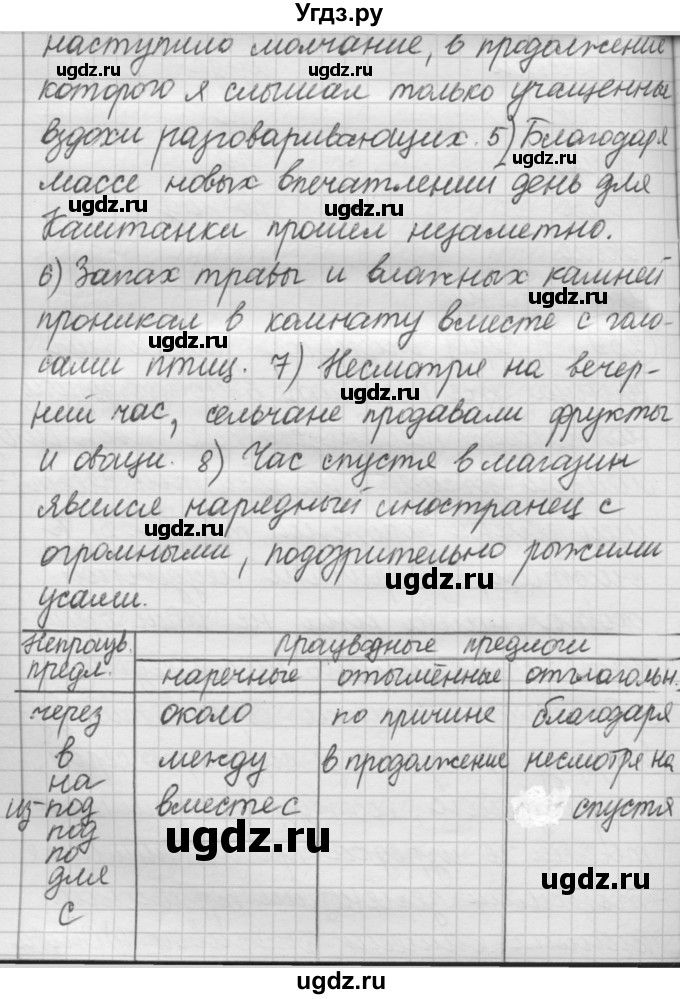 Угдз.ру
наступило молчание, в продолжение
которого я слышал только учащенны
вздохи разговаривающих. 5) Благодаря
массе новых впечатлений день для
Каштанки прошел незаметно.
6) Запах травы и влажных камней
проникал в комнату вместе с голо-
сами птиц. 7) Несмотря на вечер-
ний час, сельчане продавали фрукты
и овощи. 8) Час спустя в магазин
явился нарядный иностранец с
огромными, подозрительно рыжими
усами.
Непроизв. предл. производные предлоги
наречные отымённые отглагольн.
через около по причине благодаря
в между в продолжение несмотря на
на
из-под вместе с спустя
под
по
для
с
ugdz.ru
ugdz.ru
ugdz.ru
ugdz.ru
ugdz.ru
ugdz.ru
ugdz.ru
ugdz.ru
ugdz.ru
ugdz.ru
ugdz.ru
ugdz.ru